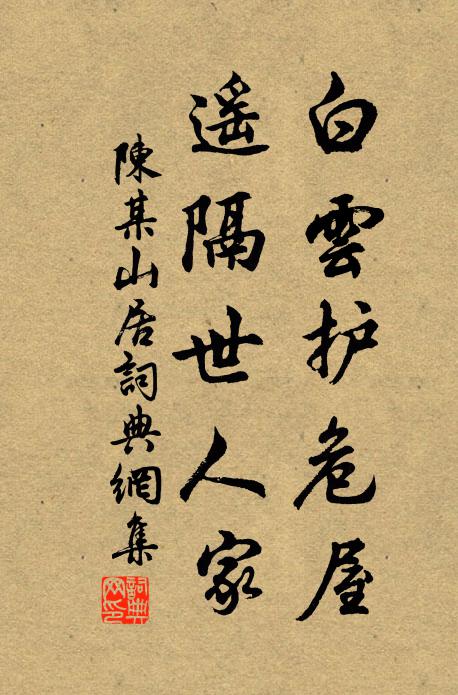 白雲护危屋
遥隔世人家
陳某山居詞典網集
詞典网印